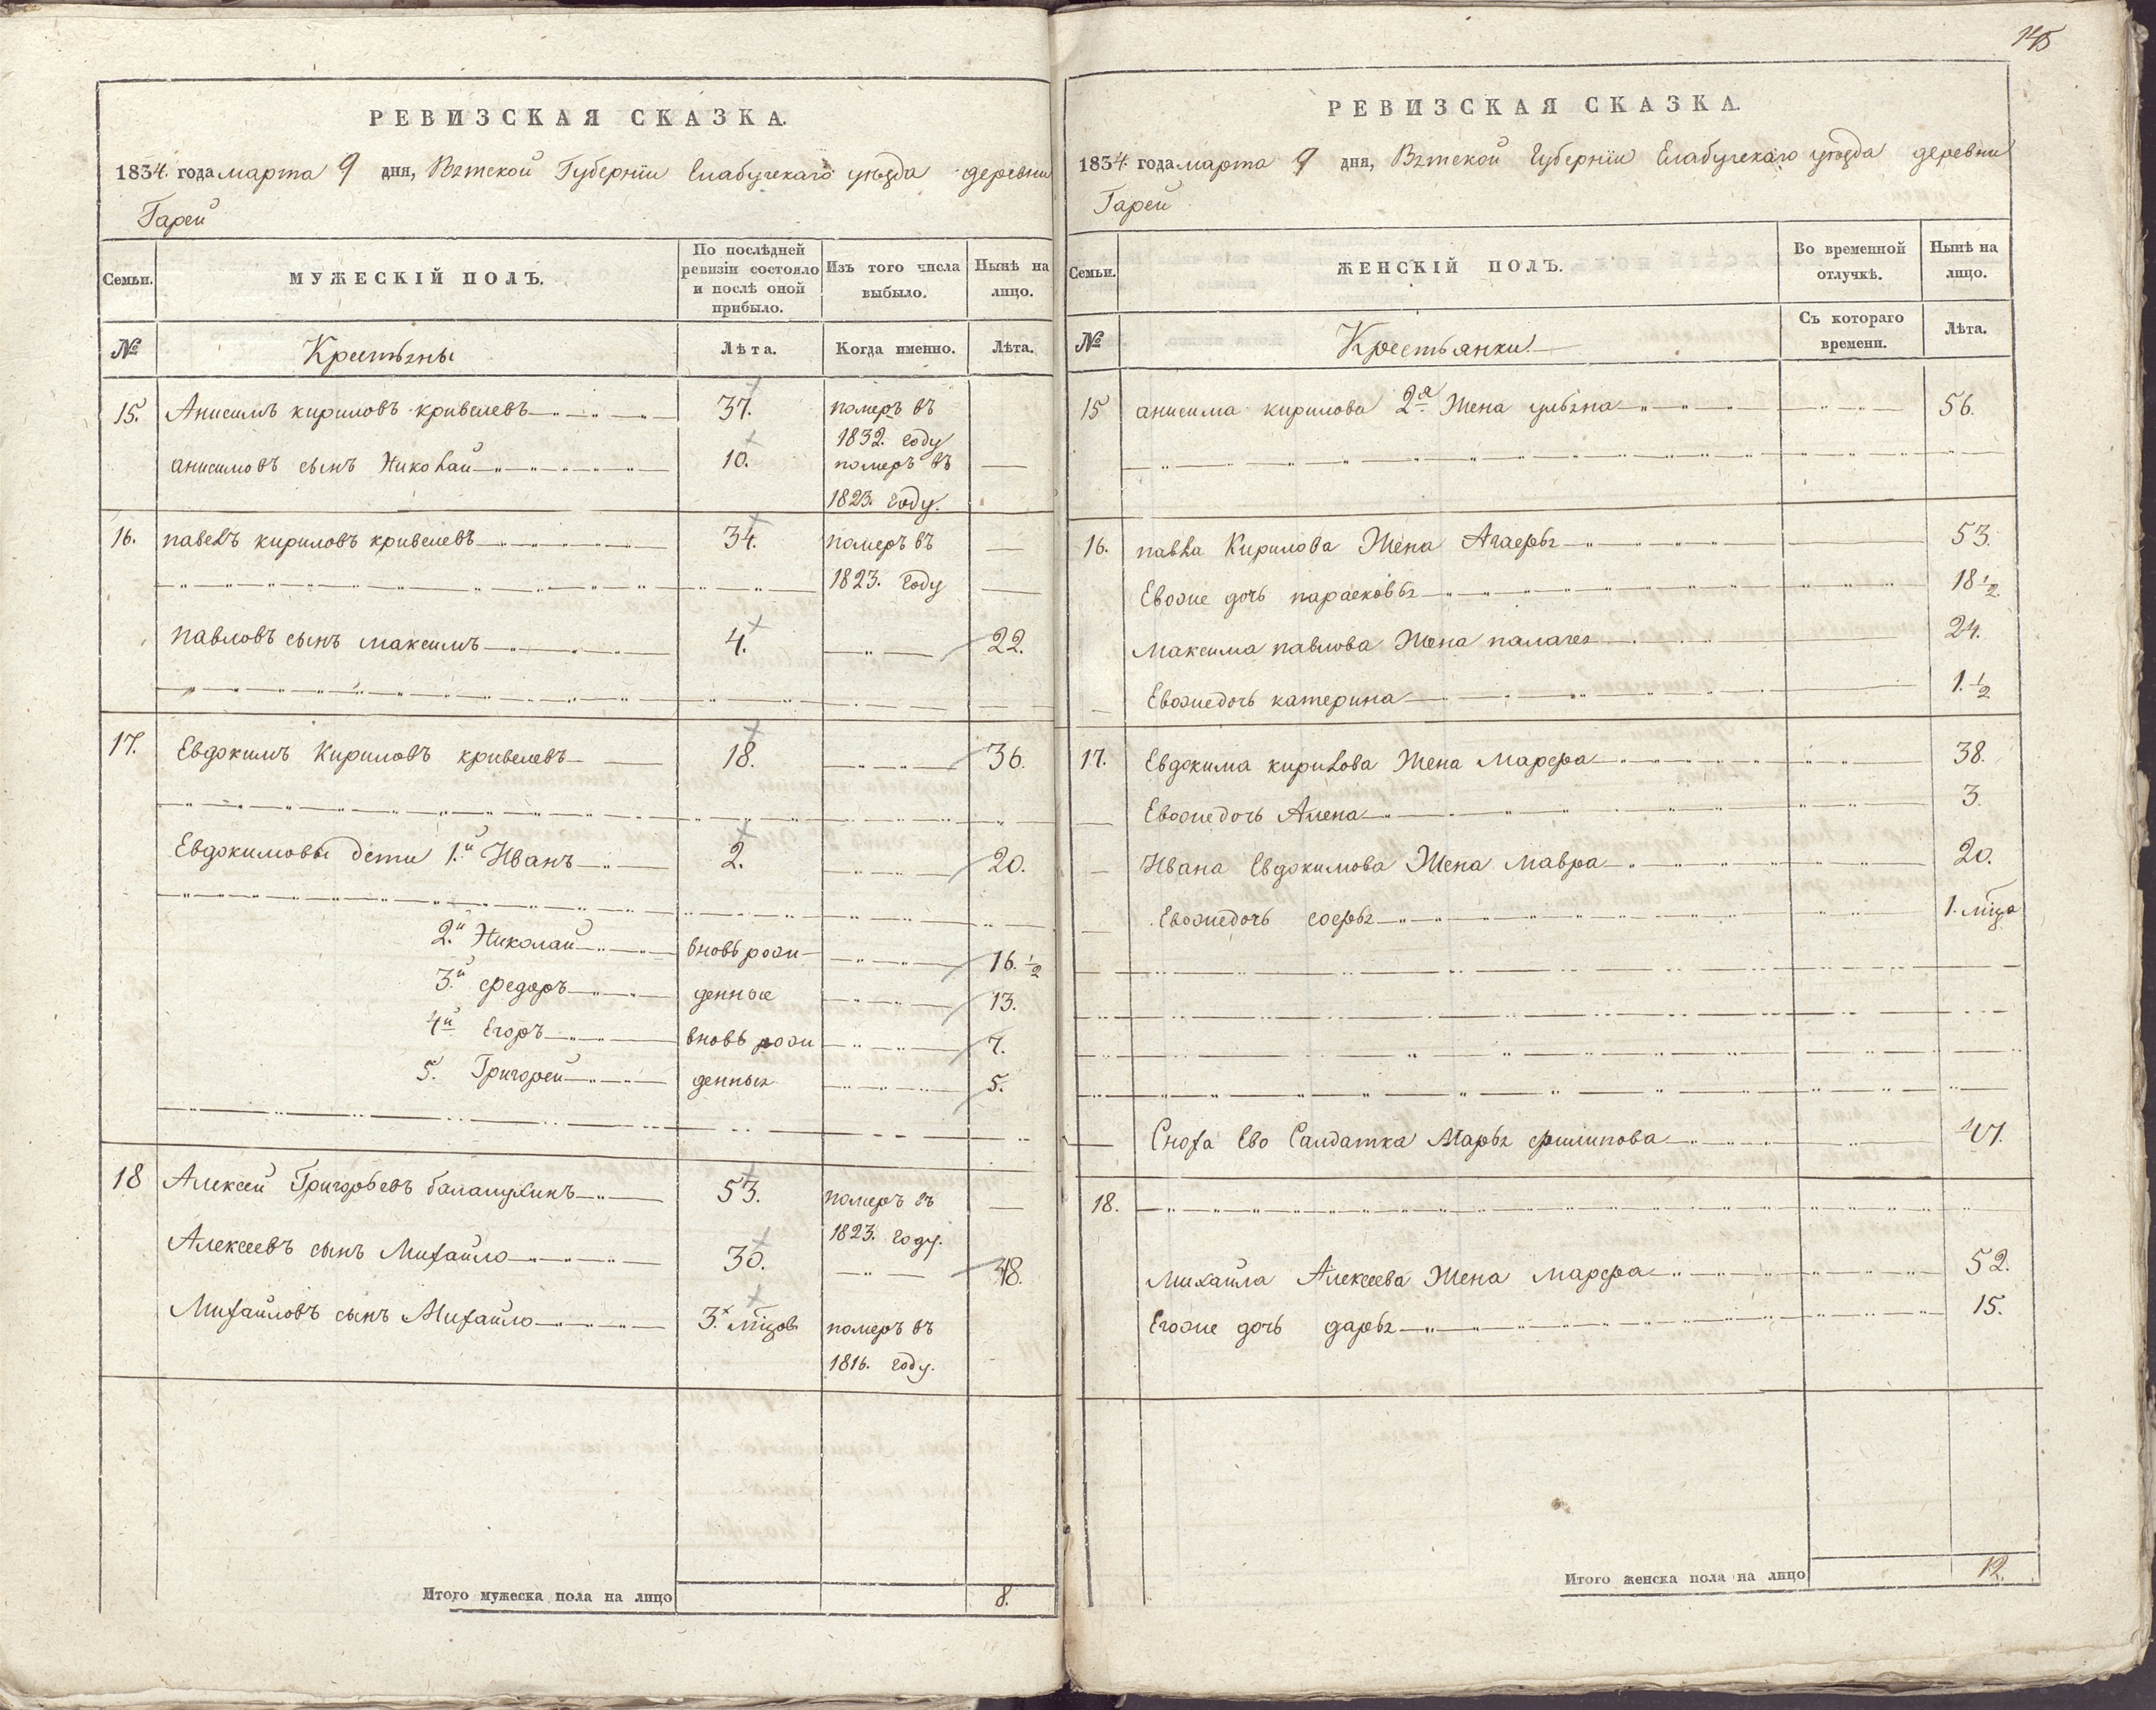 РЕВИЗСКАЯ СКАЗКА.
1834 года марта 9 дня, Вятской Губернїи Елабугскаго уѣзда деревни
Гарей
Семьи. МУЖЕСКІЙ ПОЛЪ. По послѣдней ревизіи состояло и послѣ оной прибыло. Изъ того числа выбыло. Нынѣ на лицо.
№ Крестьяны Лѣта. Когда именно. Лѣта.
15. Анисимъ кириловъ кривелевъ 37. померъ въ
1832. году
анисимовъ сынъ Николай 10. померъ въ
1823. году.
16. павелъ кириловъ кривелевъ 34. померъ въ
1823. году
павловъ сынъ максимъ 4. 22.
17. Евдокимъ Кириловъ кривелевъ 18. 36.
Евдокимовы дети 1.й Иванъ 2. 20.
2.й Николай вновь рожи- 16.½
3.й федоръ денные 13.
4й Егоръ вновь рожи 7.
5. Григорей денныя 5.
18 Алексей Григорьевъ балашихинъ 53. померъ въ
1823. году.
Алексеевъ сынъ Михайло 30. 48.
Михайловъ сынъ Михайло 3. мцов померъ въ
1816. году.
Итого мужеска пола на лицо 8.
145
РЕВИЗСКАЯ СКАЗКА.
1834 года марта 9 дня, Вятской Губернїи Елабугскаго уѣзда деревни
Гарей
Семьи. ЖЕНСКІЙ ПОЛЪ. Во временной отлучкѣ. Нынѣ на лицо.
№ Крестьянки Съ котораго времени. Лѣта.
15 анисима кирилова 2я Жена ульяна 56.
16. павла Кирилова Жена Агафья 53.
Евоже дочь парасковья 18½.
Максима павлова Жена палагея 24.
Евоже дочь катерина 1.½
17. Евдокима кирилова Жена Марфа 38.
Евоже дочь Алена 3.
Ивана Евдокимова Жена мавра 20.
Евоже дочь софья 1. мца
Сноха Ево Салдатка Марья филипова 47.
18.
Михаила Алексеева Жена марфа 52.
Егоже дочь дарья 15.
Итого женска пола на лицо 12.